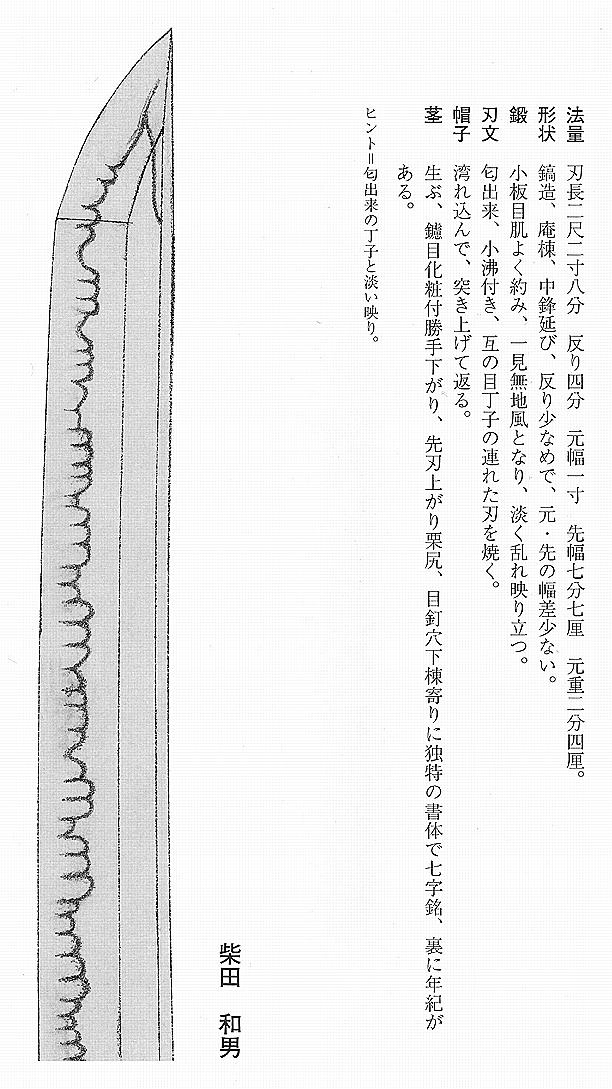 法量　刃長二尺二寸八分　反り四分　元幅一寸　先幅七分七厘　元重二分四厘。
形状　鎬造、庵棟、中鋒延び、反り少なめで、元・先の幅差少ない。
鍛　小板目肌よく約み、一見無地風となり、淡く乱れ映り立つ。
刃文　匂出来、小沸付き、互の目丁子の連れた刃を焼く。
帽子　湾れ込んで、突き上げて返る。
茎　生ぶ、鑢目化粧付勝手下がり、先刃上がり栗尻、目釘穴下棟寄りに独特の書体で七字銘、裏に年紀が
ある。
ヒント＝匂出来の丁子と淡い映り。
柴田　和男